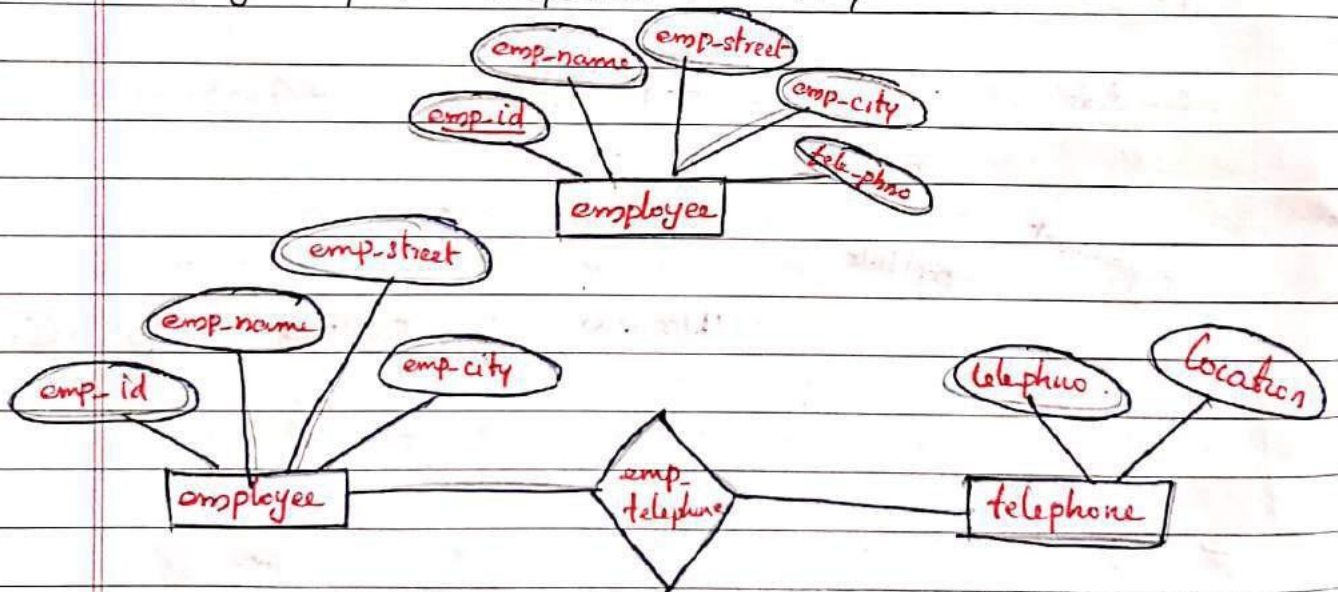 emp-name
emp-street
emp-city
emp-id
tele-phno
employee
emp-street
emp-name
emp-city
emp-id
telephno.
Location
employee
emp-
telephone
telephone